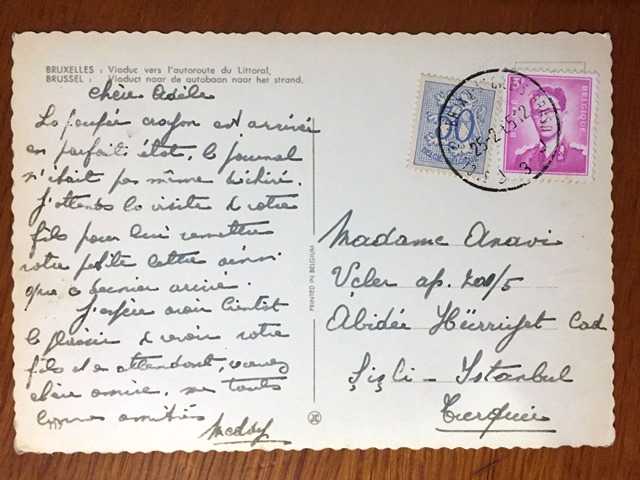 BRUXELLES : Viaduc vers l'autoroute du Littoral,
BRUSSEL : Viaduct naar de autobaan naar het strand.
Chère Adèle
La poupée crayon est arrivée
en parfait état, le journal
n'était pas même déchiré.
J'attends la visite de votre
fils pour lui remettre
votre petite lettre ainsi
arrivé.
J'espère avoir bientôt
le plaisir de revoir votre
fils et en attendant, recevez
chère amie, mes
amitiés
PRINTED IN BELGIUM
50
3F
BELGIQUE
Madame Anavi
Üçler ap. 200/5
Abidée Hürriyet Cad
Şişli - Istanbul
Turquie